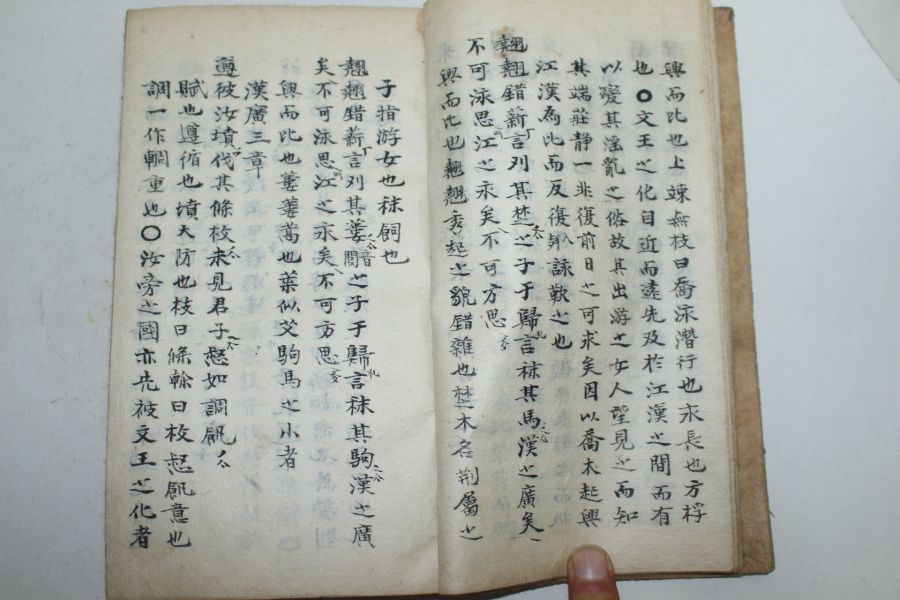 興而比也上竦無枝曰喬泳潛行也永長也方桴
也○文王之化自近而遠先及於江漢之間而有
以變其淫亂之俗故其出游之女人望見之而知
其端莊靜一非復前日之可求矣因以喬木起興
江漢為比而反復詠歎之也
翹翹錯薪言刈其楚之子于歸言秣其馬漢之廣矣
不可泳思江之永矣不可方思
興而比也翹翹秀起之貌錯雜也楚木名荊屬之
子指游女也秣飼也
翹翹錯薪言刈其蔞之子于歸言秣其駒漢之廣
矣不可泳思江之永矣不可方思
興而比也蔞蔞蒿也葉似艾駒馬之小者
漢廣三章
遵彼汝墳伐其條枚未見君子惄如調飢
賦也遵循也墳大防也枝曰條榦曰枚惄飢意也
調一作輖重也○汝旁之國亦先被文王之化者